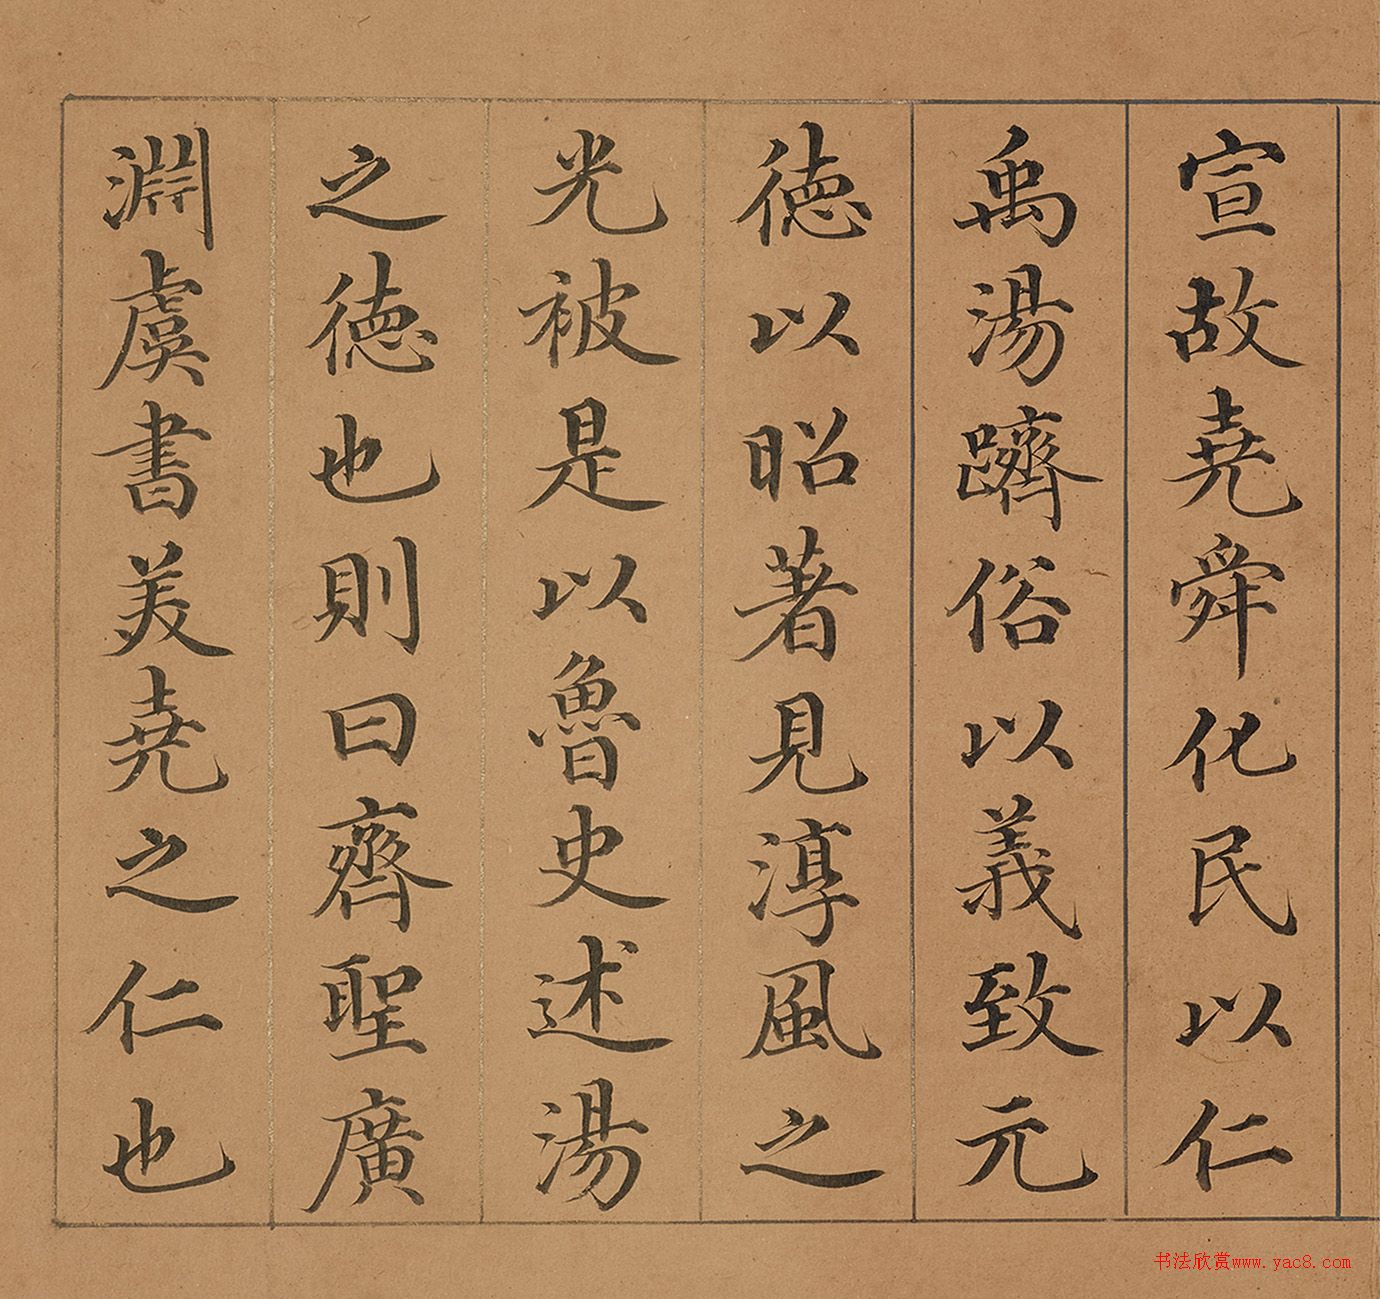 宣故堯舜化民以仁
禹湯躋俗以義致元
德以昭著見淳風之
光被是以魯史述湯
之德也則曰齊聖廣
淵虞書美堯之仁也
书法欣赏www.yac8.com